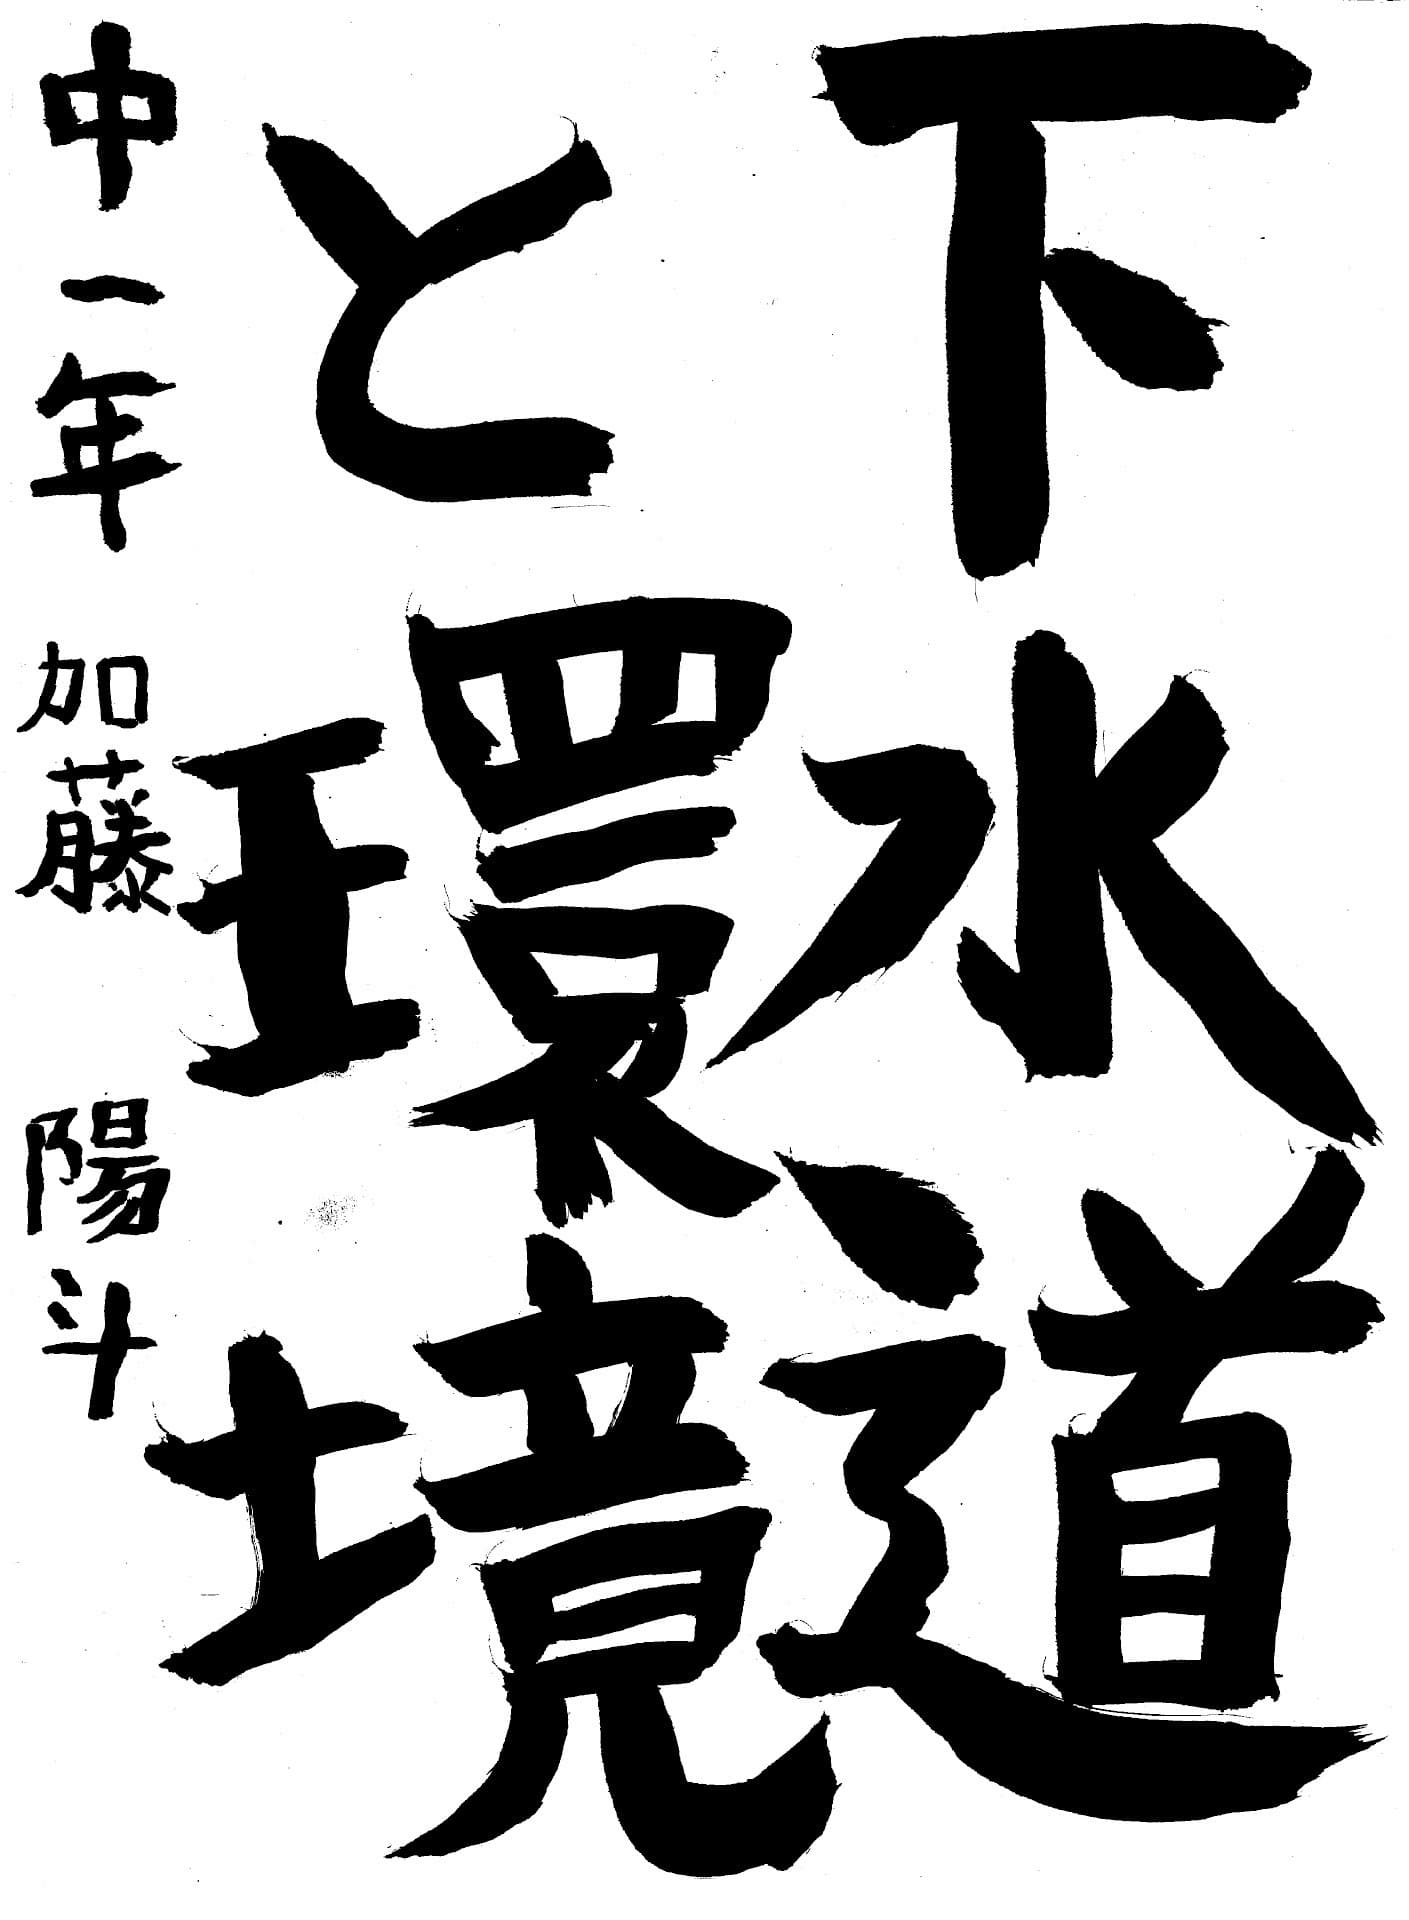 下水道
と環境
中一年 加藤 陽斗